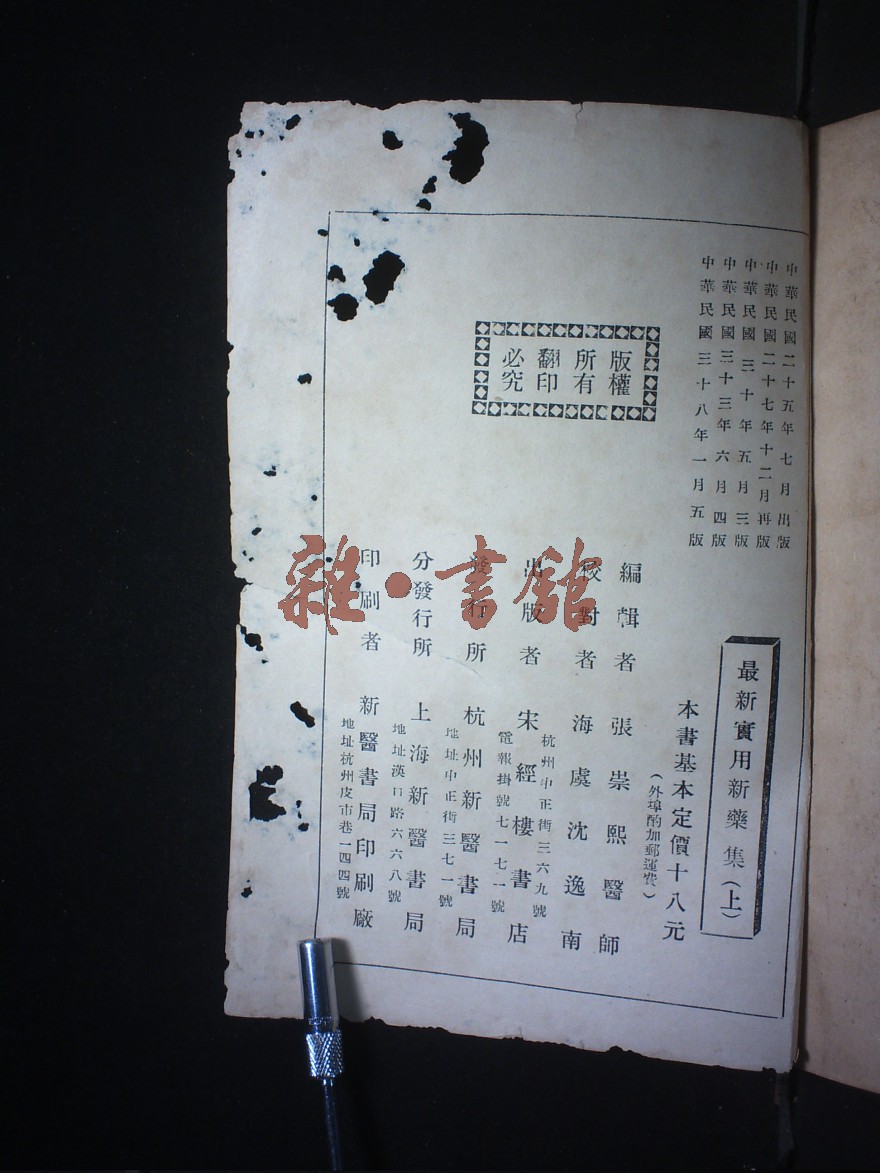 中華民國二十五年七月出版
中華民國二十七年十二月再版
中華民國三十年五月三版
中華民國三十三年六月四版
中華民國三十八年一月五版
版權
所有
翻印
必究
最新實用新藥集(上)
本書基本定價十八元
(外埠酌加郵運費)
編輯者 張崇熙醫師
校對者 海虞沈逸南
出版者 宋經樓書店
杭州中正街三六九號
電報掛號七一七一號
發行所 杭州新醫書局
地址中正街三七一號
分發行所 上海新醫書局
地址漢口路六六八號
印刷者 新醫書局印刷廠
地址杭州皮市巷一四四號
雜·書館